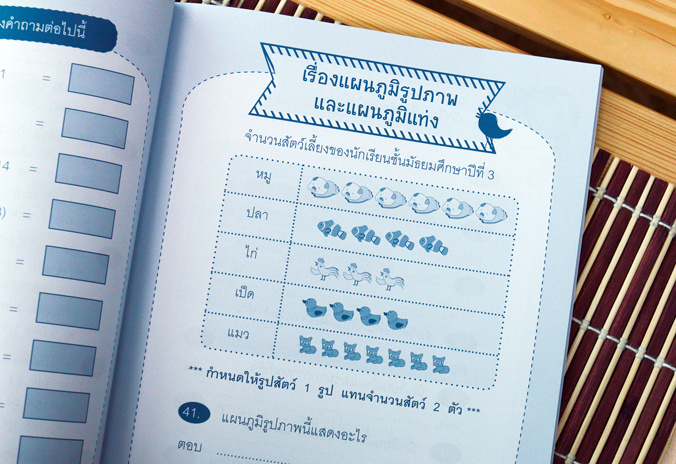 งคำถามต่อไปนี้
1 =
=
14 =
) =
=
=
=
=
เรื่องแผนภูมิรูปภาพ
และแผนภูมิแท่ง
จำนวนสัตว์เลี้ยงของนักเรียนชั้นมัธยมศึกษาปีที่ 3
หมู
ปลา
ไก่
เป็ด
แมว
*** กำหนดให้รูปสัตว์ 1 รูป แทนจำนวนสัตว์ 2 ตัว ***
41. แผนภูมิรูปภาพนี้แสดงอะไร
ตอบ